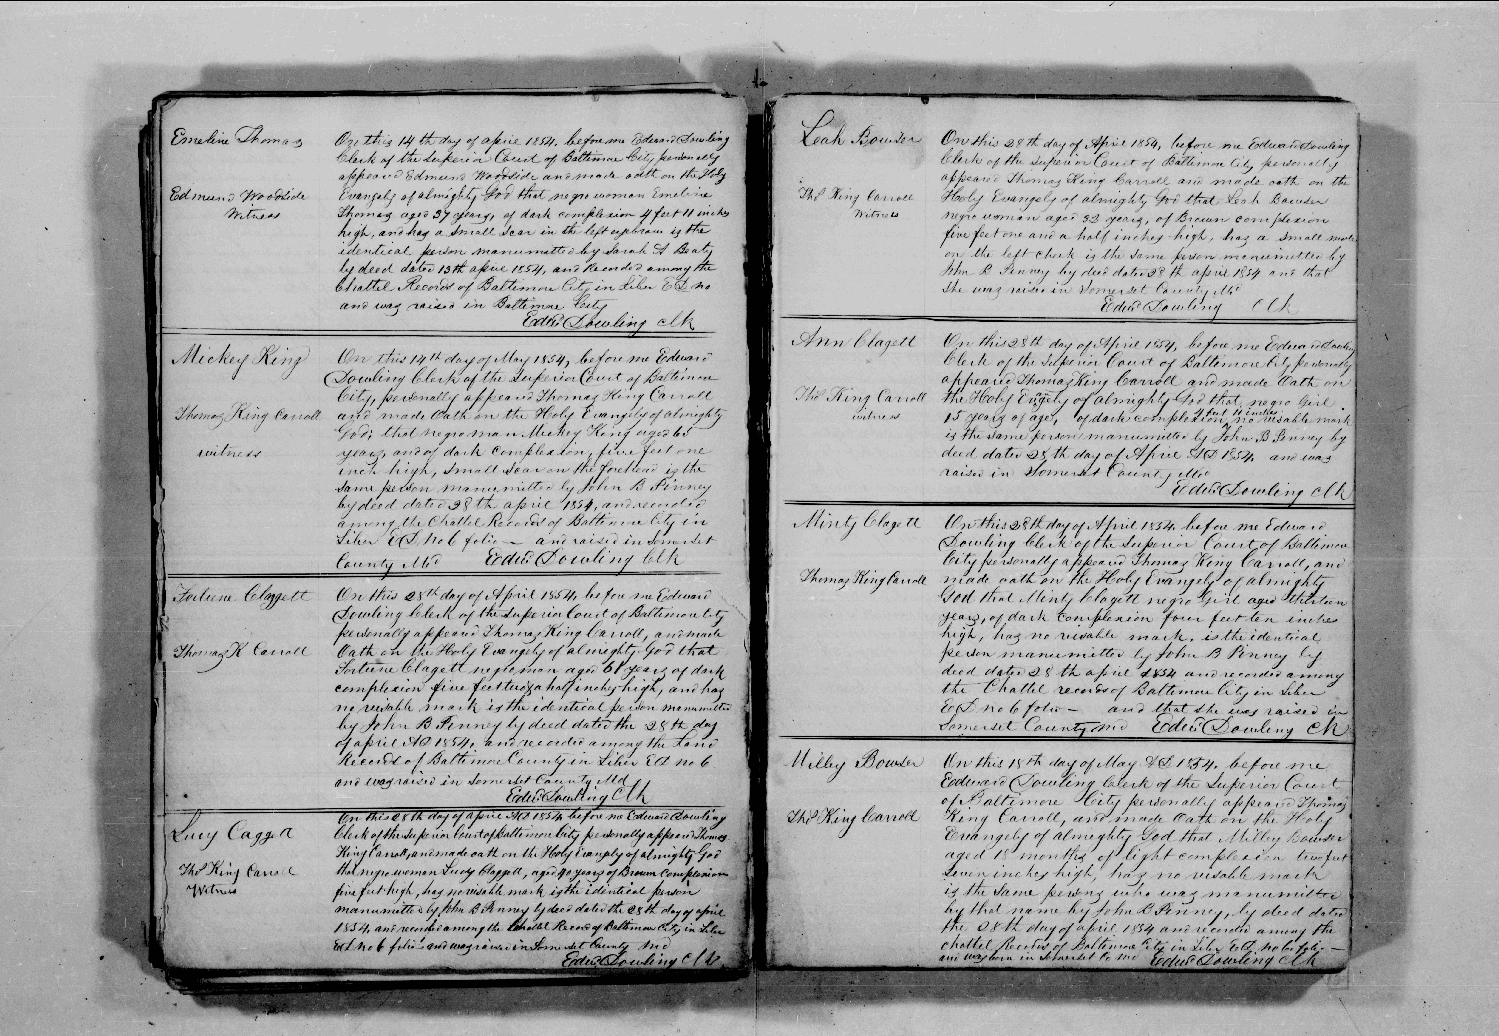 Emeline Thomas
Edmund Woodside
Witness
On this 14th day of April 1854, before me Edward Dowling
Clerk of the Superior Court of Baltimore City personally
appeared Edmund Woodside and made oath on the Holy
Evangely of almighty God that negro woman Emeline
Thomas aged 37 years, of dark complexion 4 feet 11 inches
high, and has a small scar in the left eyebrow is the
identical person manumitted by Sarah A Beaty
by deed dated 13th April 1854, and Recorded among the
Chattel Records of Baltimore City in Liber ED no
and was raised in Baltimore City
Edwd Dowling Clk
Mickey King
Thomas King Carroll
witness
On this 14th day of May 1854, before me Edward
Dowling Clerk of the Superior Court of Baltimore
City, personally appeared Thomas King Carroll
and made Oath on the Holy Evangely of almighty
God; that negro man Mickey King aged 65
years, and of dark complexion, five feet one
inch high, small scar on the forehead is the
same person manumitted by John B Pinney
by deed dated 28th april 1854, and recorded
among the Chattel Records of Baltimore City in
Liber ED no 6 folio — and raised in Somerset
County Md Edwd Dowling Clk
Fortune Claggett
Thomas K Carroll
On this 28th day of April 1854, before me Edward
Dowling Clerk of the Superior Court of Baltimore City
personally appeared Thomas King Carroll, and made
Oath on the Holy Evangely of almighty God that
Fortune Clagett negro man aged 61 years of dark
complexion five feet two & a half inches high, and has
no visable mark is the identical person manumitted
by John B Penney by deed dated the 28th day
of april AD 1854, and recorded among the Land
Records of Baltimore County in Liber ED no 6
and was raised in Somerset County Md
Edwd Dowling Clk
Lucy Caggett
Thos King Carroll
Witness
On this 28th day of april AD 1854 before me Edward Dowling
Clerk of the Superior Court of Baltimore City personally appeared Thomas
King Carroll, and made oath on the Holy Evangely of almighty God
that negro woman Lucy Claggett, aged 40 years of Brown Complexion
five feet high, has no visable mark is the identical person
manumitted by John B Penney by deed dated the 28th day of april
1854, and recorded among the Chattel Record of Baltimore City in Liber
ED no 6 folio and was raised in Somerset County Md
Edwd Dowling Clk
Leah Bowser
Thos King Carroll
Witness
On this 28th day of April 1854, before me Edward Dowling
Clerk of the Superior Court of Baltimore City personally
appeared Thomas King Carroll and made oath on the
Holy Evangely of almighty God that Leah Bowser
negro woman aged 33 years, of Brown complexion
five feet one and a half inches high, has a small mole
on the left cheek is the same person manumitted by
John B Penney by deed dated 28th april 1854 and that
she was raised in Somerset County Md
Edwd Dowling Clk
Ann Clagett
Thos King Carroll
witness
On this 28th day of April 1854, before me Edward Dowling
Clerk of the Superior Court of Baltimore City personally
appeared Thomas King Carroll and made Oath on
the Holy Evangely of almighty God that negro Girl
15 years of age, of dark complexion 4 feet 11 inches no visable mark
is the same person manumitted by John B Penney by
deed dated 28th day of April AD 1854 and was
raised in Somerset County Md
Edwd Dowling Clk
Minty Clagett
Thomas King Carroll
On this 28th day of April 1854, before me Edward
Dowling Clerk of the Superior Court of Baltimore
City personally appeared Thomas King Carroll, and
made oath on the Holy Evangely of almighty
God that Minty Clagett negro Girl aged thirteen
years, of dark complexion four feet ten inches
high, has no visable mark, is the identical
person manumitted by John B Penney by
deed dated 28th april 1854 and recorded among
the Chattel records of Baltimore City in Liber
ED no 6 folio — and that she was raised in
Somerset County md Edwd Dowling Clk
Milley Bowser
Thos King Carroll
On this 18th day of May AD 1854, before me
Eodward Dowling Clerk of the Superior Court
of Baltimore City personally appeared Thomas
King Carroll, and made Oath on the Holy
Evangely of almighty God that Milley Bowser
aged 18 months, of light complexion two feet
seven inches high, has no visable mark
is the same persons who was manumitted
by that name by John B Penney, by deed dated
the 28th day of april 1854 and recorded among the
chattel Records of Baltimore City in Liber ED no 6 folio —
and was born in Somerset Co Md Edwd Dowling Clk